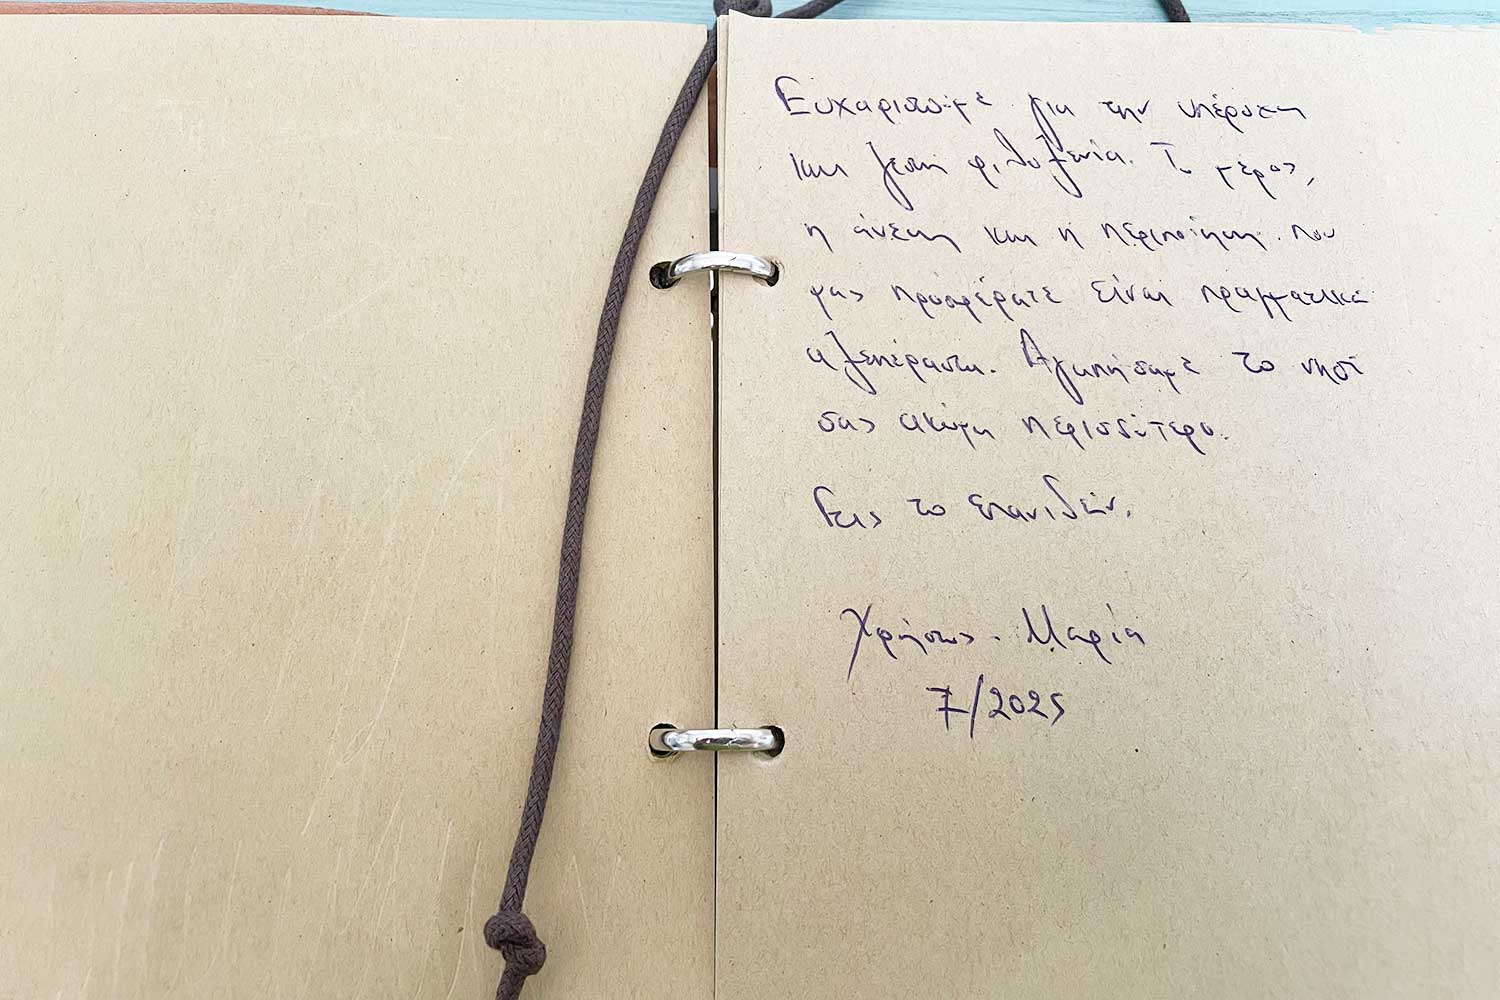 Ευχαριστούμε για την υπέροχη
και ζεστή φιλοξενία. Το μέρος,
η άνεση και η περιποίηση που
μας προσφέρατε είναι πραγματικά
αξεπέραστα. Αγαπήσαμε το νησί
σας ακόμη περισσότερο.
Εις το επανιδείν.
Χρήστος - Μαρία
7/2025